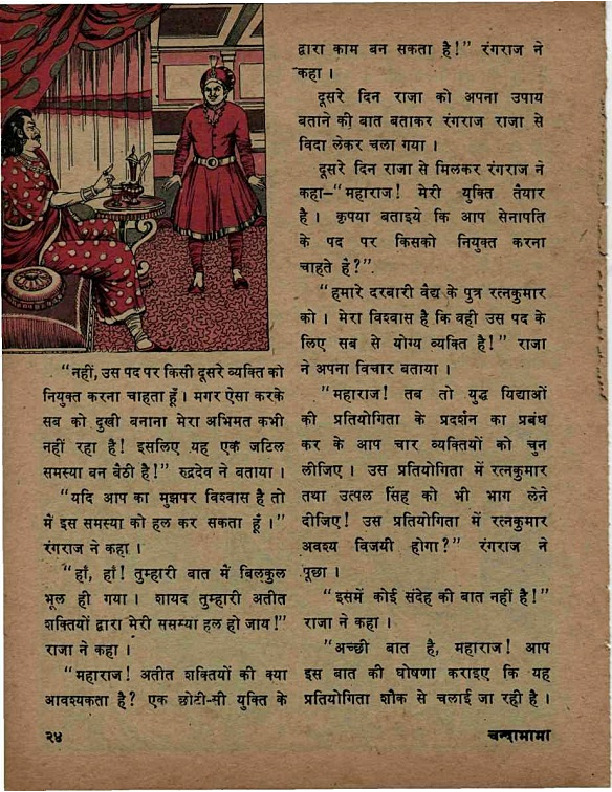 “नहीं, उस पद पर किसी दूसरे व्यक्ति को
नियुक्त करना चाहता हूँ। मगर ऐसा करके
सब को दुखी बनाना मेरा अभिमत कभी
नहीं रहा है! इसलिए यह एक जटिल
समस्या बन बैठी है!” रुद्रदेव ने बताया।
“यदि आप का मुझपर विश्वास है तो
मैं इस समस्या को हल कर सकता हूँ।”
रंगराज ने कहा।
“हाँ, हाँ! तुम्हारी बात मैं बिलकुल
भूल ही गया। शायद तुम्हारी अतीत
शक्तियों द्वारा मेरी समस्या हल हो जाय!”
राजा ने कहा।
“महाराज! अतीत शक्तियों की क्या
आवश्यकता है? एक छोटी-सी युक्ति के
द्वारा काम बन सकता है!” रंगराज ने
कहा।
दूसरे दिन राजा को अपना उपाय
बताने की बात बताकर रंगराज राजा से
विदा लेकर चला गया।
दूसरे दिन राजा से मिलकर रंगराज ने
कहा-“महाराज! मेरी युक्ति तैयार
है। कृपया बताइये कि आप सेनापति
के पद पर किसको नियुक्त करना
चाहते हैं?”
“हमारे दरबारी वैद्य के पुत्र रत्नकुमार
को। मेरा विश्वास है कि वही उस पद के
लिए सब से योग्य व्यक्ति है!” राजा
ने अपना विचार बताया।
“महाराज! तब तो युद्ध विद्याओं
की प्रतियोगिता के प्रदर्शन का प्रबंध
कर के आप चार व्यक्तियों को चुन
लीजिए। उस प्रतियोगिता में रत्नकुमार
तथा उत्पल सिंह को भी भाग लेने
दीजिए! उस प्रतियोगिता में रत्नकुमार
अवश्य विजयी होगा?” रंगराज ने
पूछा।
“इसमें कोई संदेह की बात नहीं है!”
राजा ने कहा।
“अच्छी बात है, महाराज! आप
इस बात की घोषणा कराइए कि यह
प्रतियोगिता शौक से चलाई जा रही है।
२४
चन्दामामा